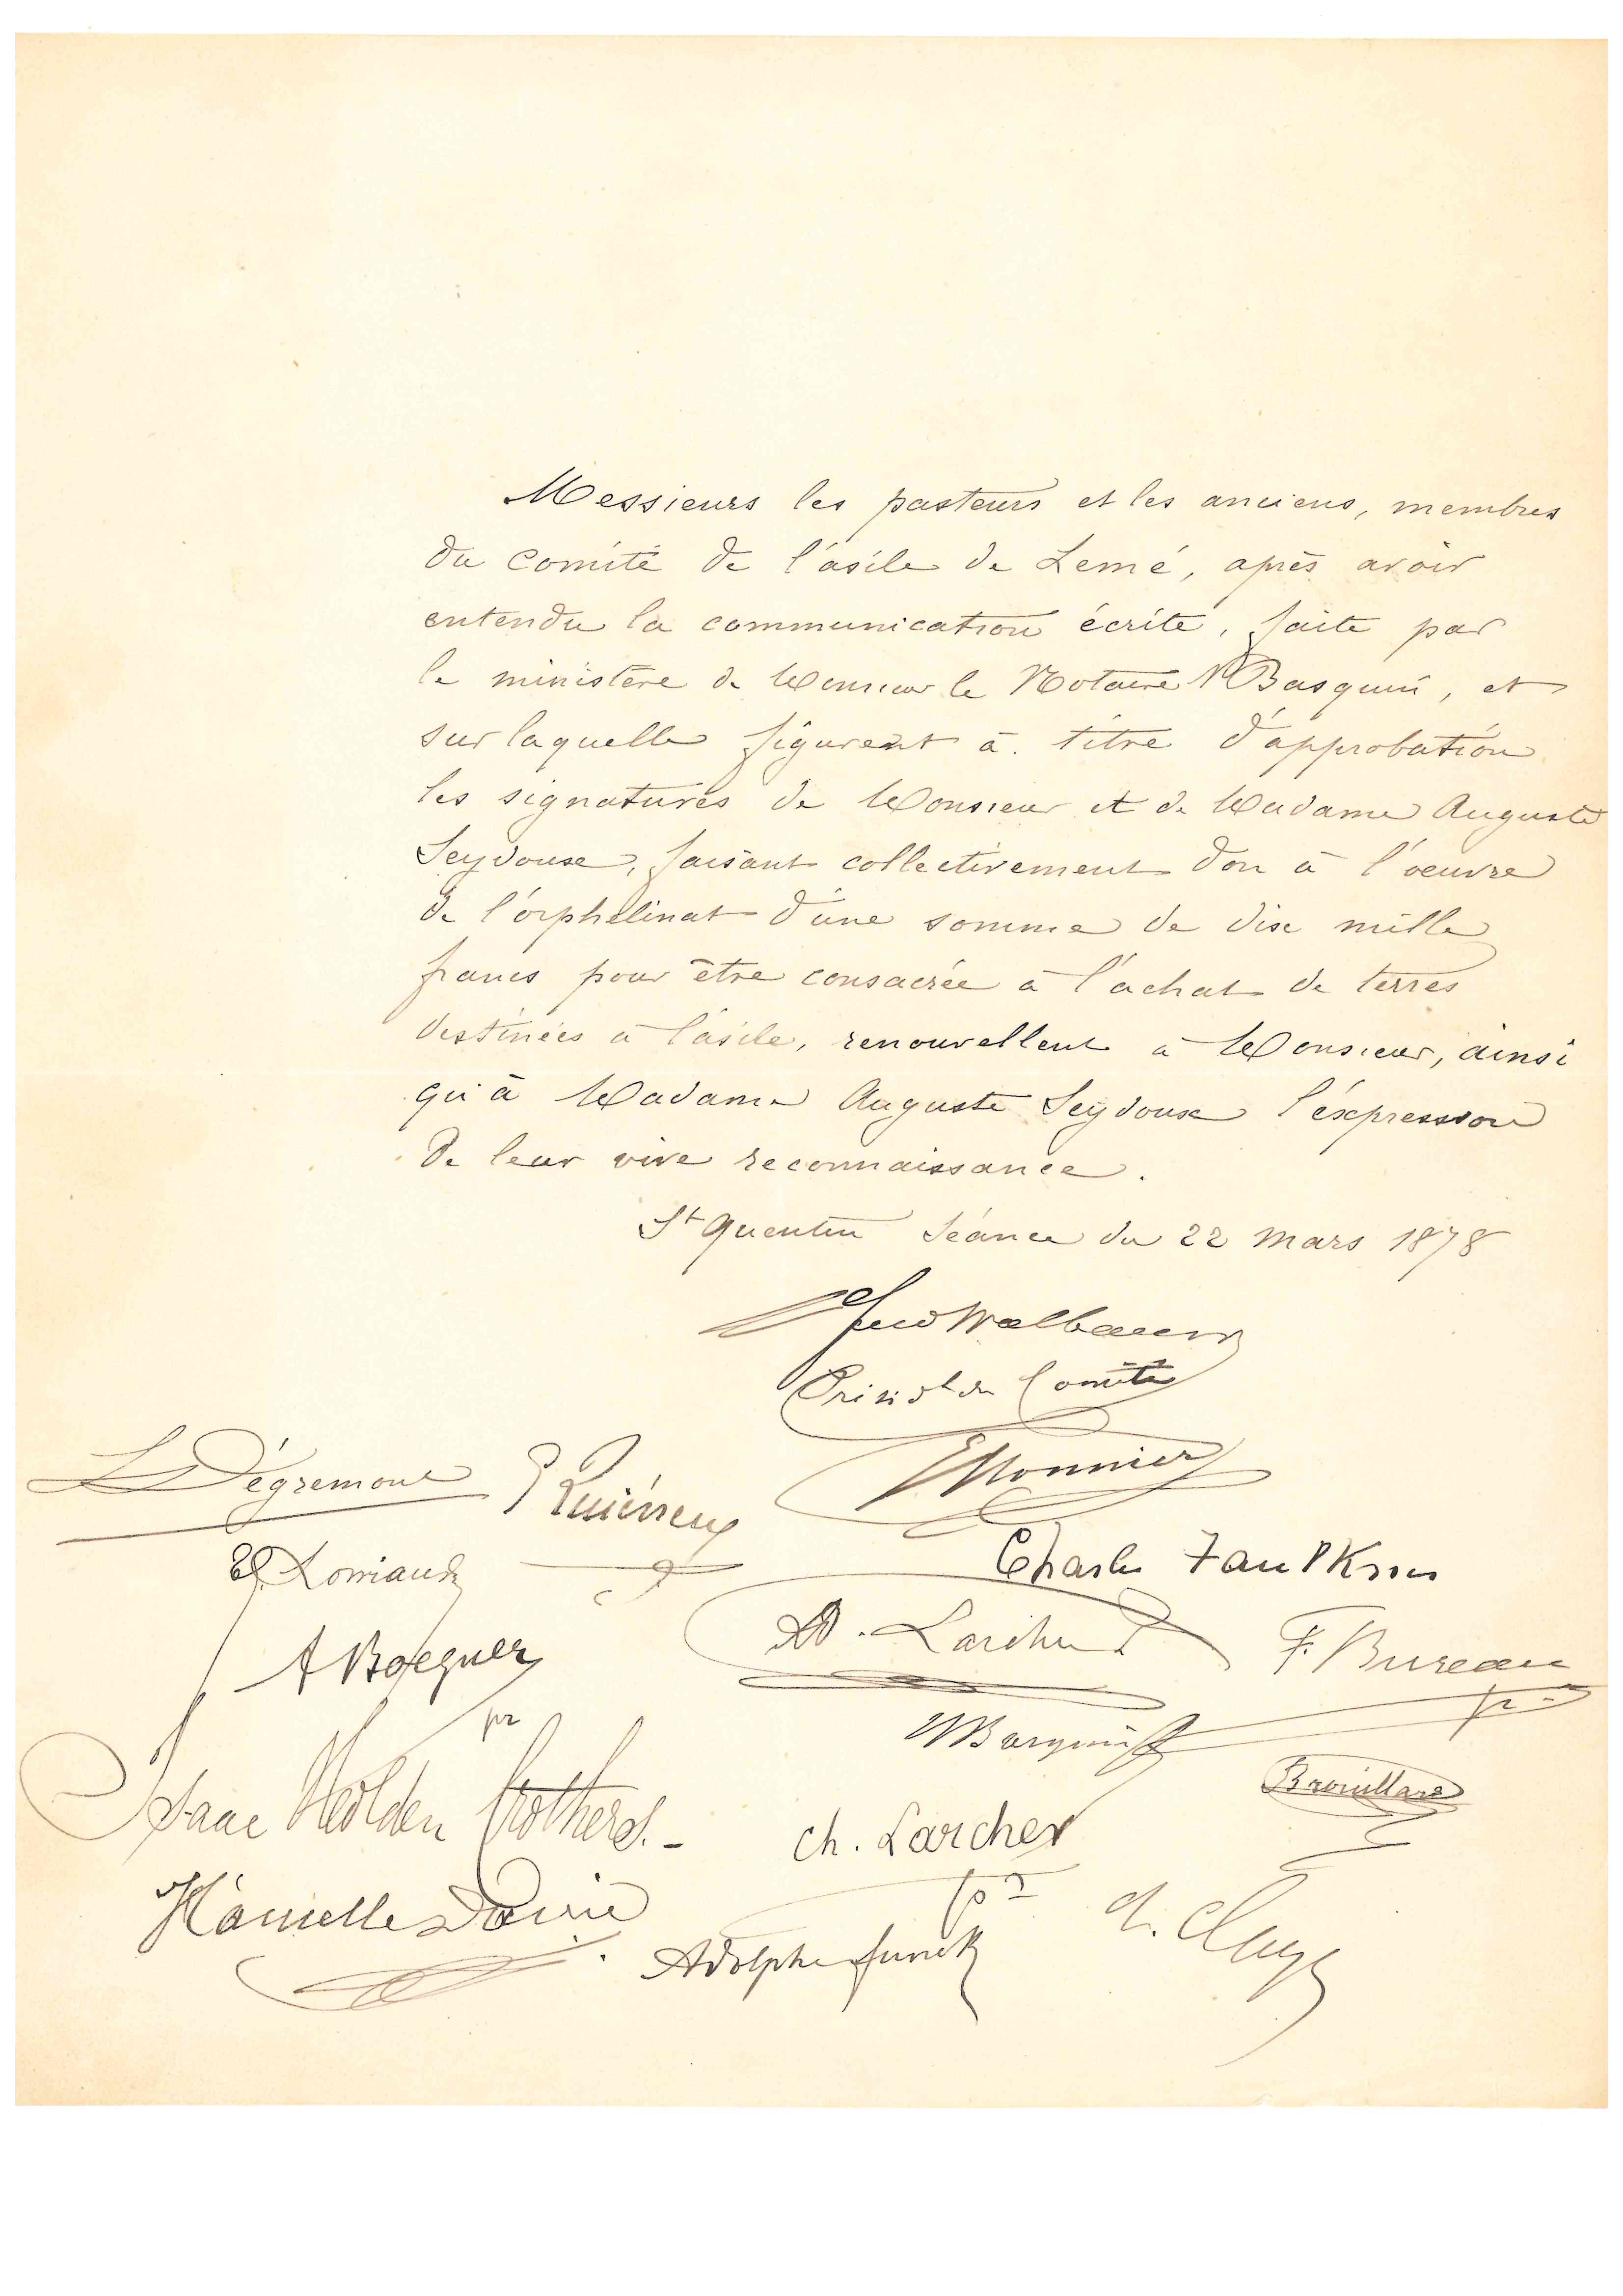 Messieurs les pasteurs et les anciens, membres
du comité de l'asile de Lemé, après avoir
entendu la communication écrite, faite par
le ministère de Monsieur le Notaire Basquin, et
sur laquelle figurent à titre d'approbation
les signatures de Monsieur et de Madame Auguste
Seydoux, faisant collectivement don à l'oeuvre
de l'orphelinat d'une somme de dix mille
francs pour être consacrée à l'achat de terres
destinées à l'asile, renouvellent à Monsieur, ainsi
qu'à Madame Auguste Seydoux l'expression
de leur vive reconnaissance.
St Quentin Séance du 22 mars 1878
Walbaum
Présidt du Comité
Monnier
L Dégremont
Charles Faulkner
D. Larcher
F. Bureau
A Bocquet
pr
Basquin
Brouillard
Isaac Holden Brothers.
Ch. Larcher
pr
Hamelle David
Adolphe Funck